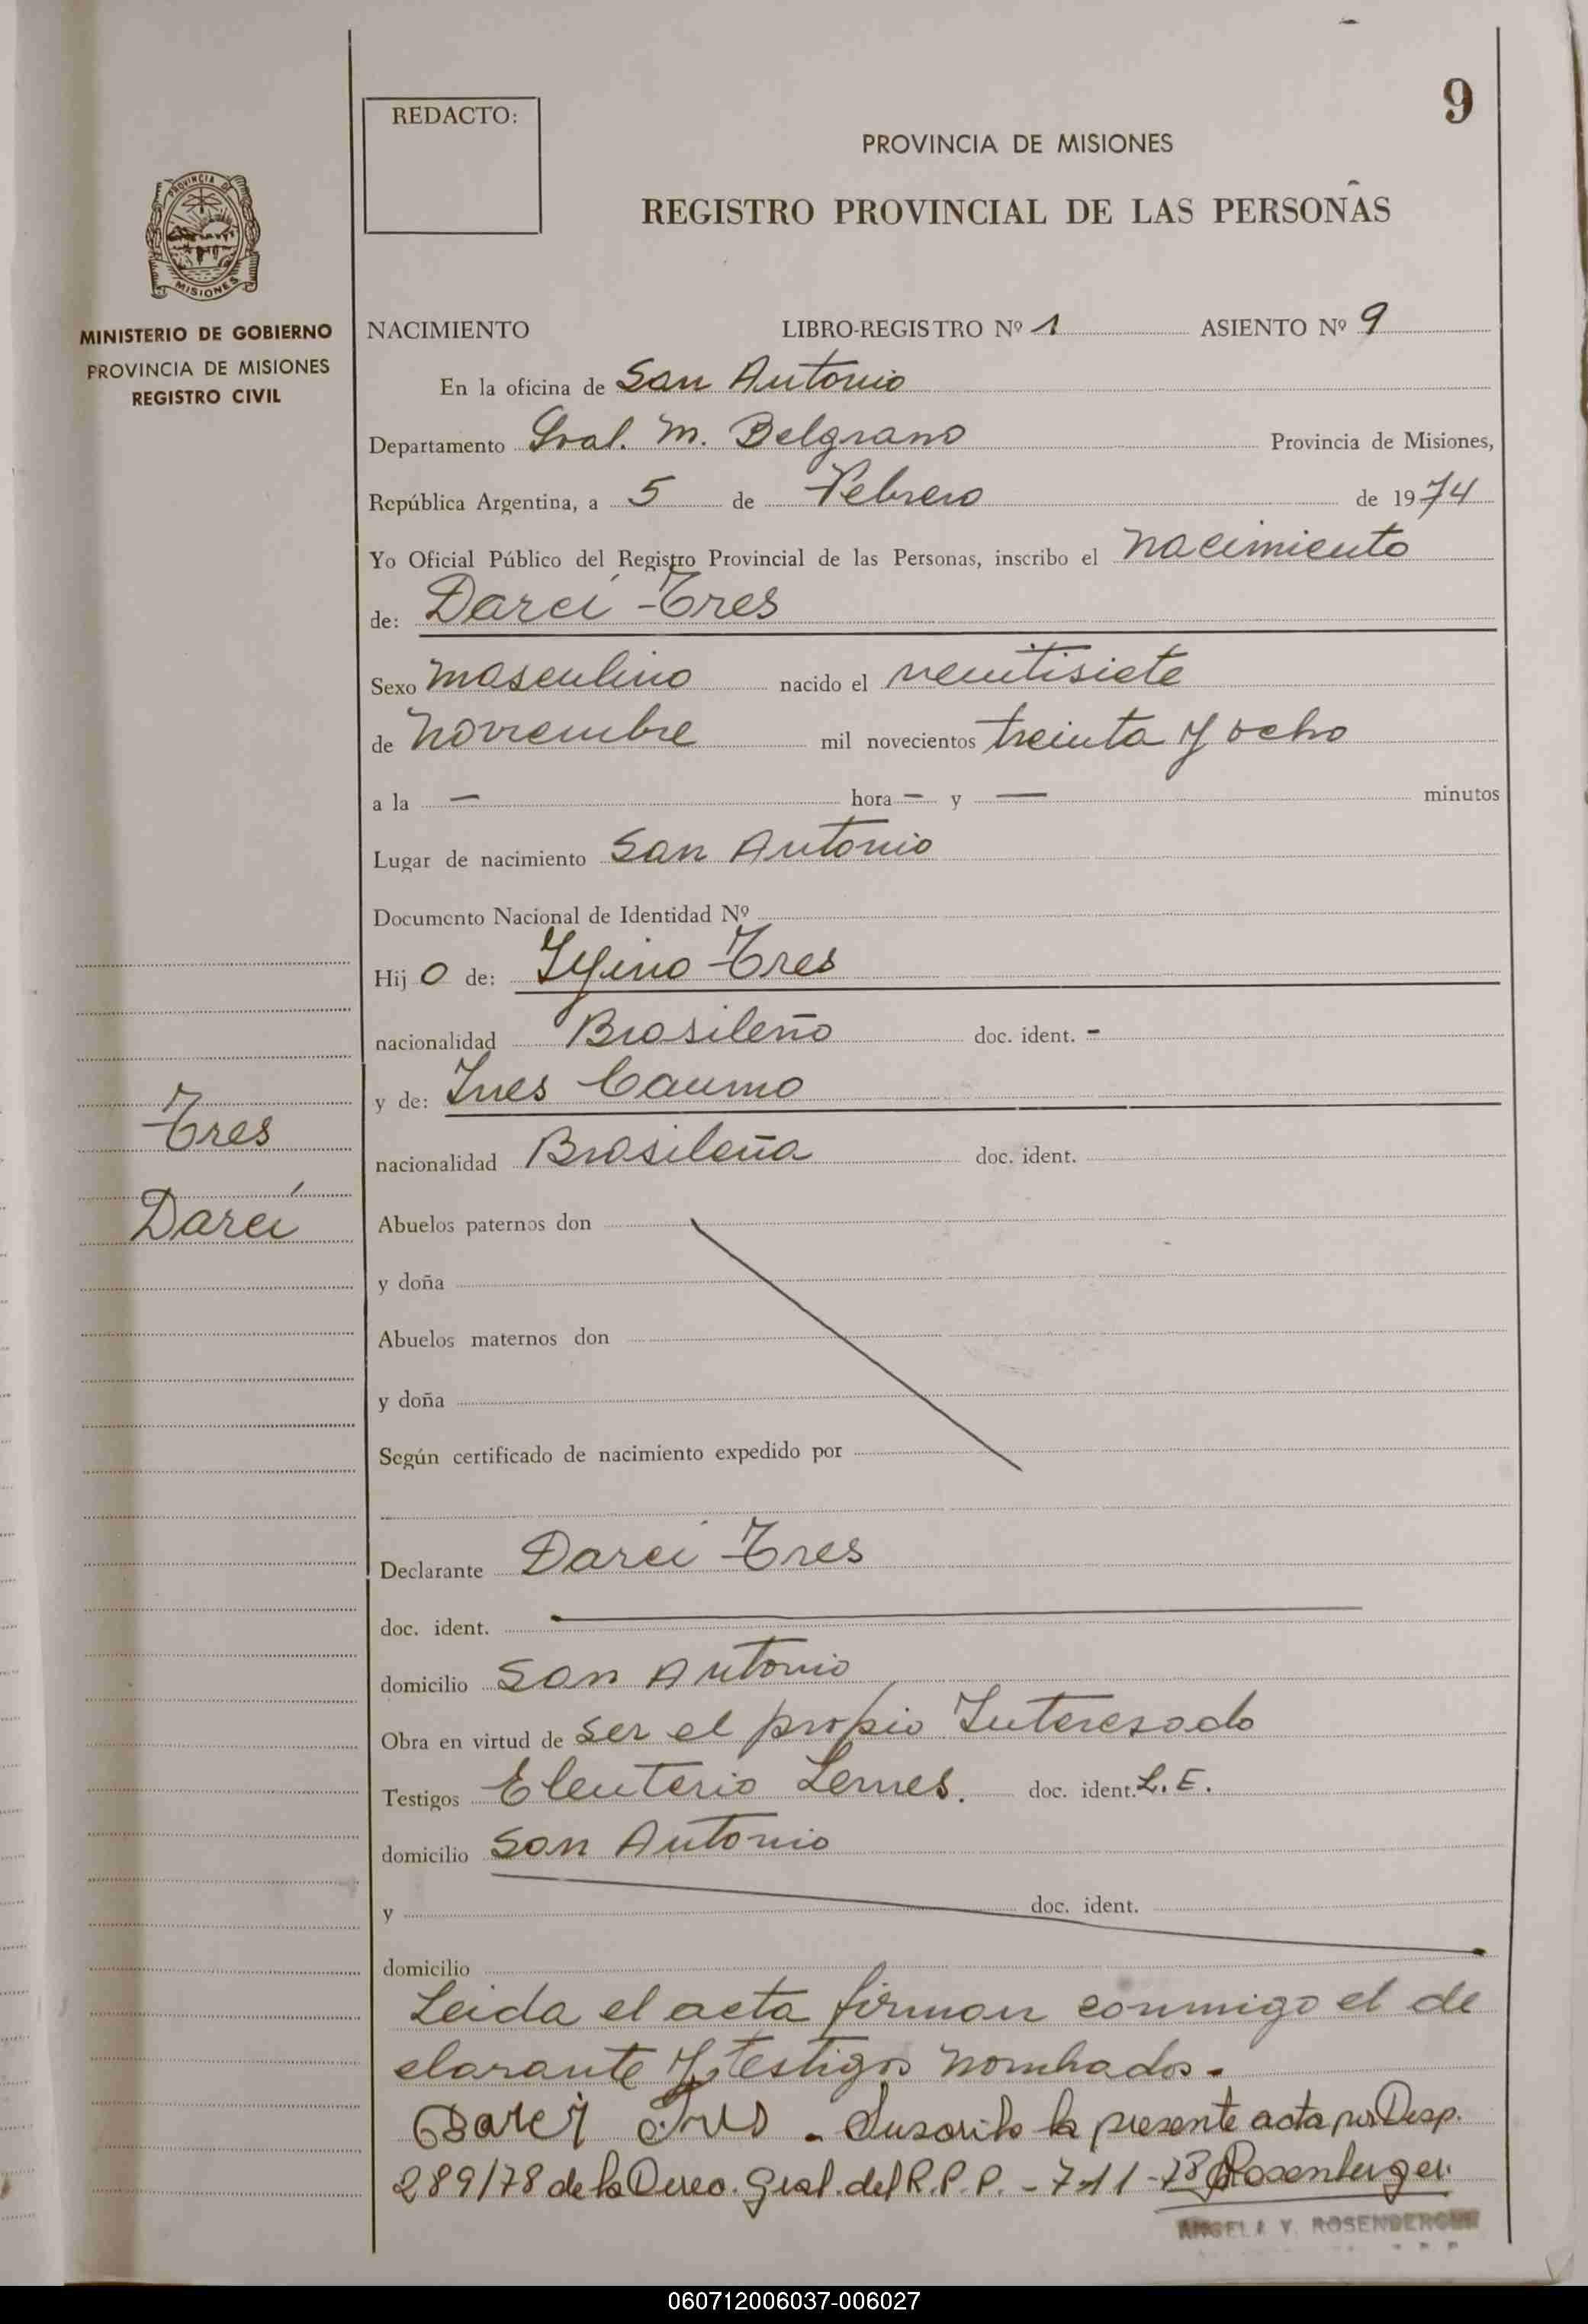 9
REDACTO:
PROVINCIA DE MISIONES
REGISTRO PROVINCIAL DE LAS PERSONAS
PROVINCIA DE
MISIONES
MINISTERIO DE GOBIERNO
PROVINCIA DE MISIONES
REGISTRO CIVIL
NACIMIENTO LIBRO-REGISTRO Nº 1 ASIENTO Nº 9
En la oficina de San Antonio
Departamento Gral. M. Belgrano Provincia de Misiones,
República Argentina, a 5 de Febrero de 1974
Yo Oficial Público del Registro Provincial de las Personas, inscribo el nacimiento
de: Darcí Tres
Sexo masculino nacido el veintisiete
de noviembre mil novecientos treinta y ocho
a la — hora — y — minutos
Lugar de nacimiento San Antonio
Documento Nacional de Identidad Nº
Hij o de: Tres
nacionalidad Brasileño doc. ident. -
y de: Ines Caumo
nacionalidad Brasileña doc. ident.
Tres
Darcí
Abuelos paternos don
y doña
Abuelos maternos don
y doña
Según certificado de nacimiento expedido por
Declarante Darci Tres
doc. ident.
domicilio San Antonio
Obra en virtud de ser el propio Interesado
Testigos Eleuterio Lemes. doc. ident. L.E.
domicilio San Antonio
y doc. ident.
domicilio
Leida el acta firman conmigo el de
clarante y testigos nombrados.
Darci Tres - Suscribo la presente acta por Disp.
289/78 de la Direc. Gral. del R.P.P. - 7-11-78 Rosenberger
ANGELA Y. ROSENBERGER
060712006037-006027